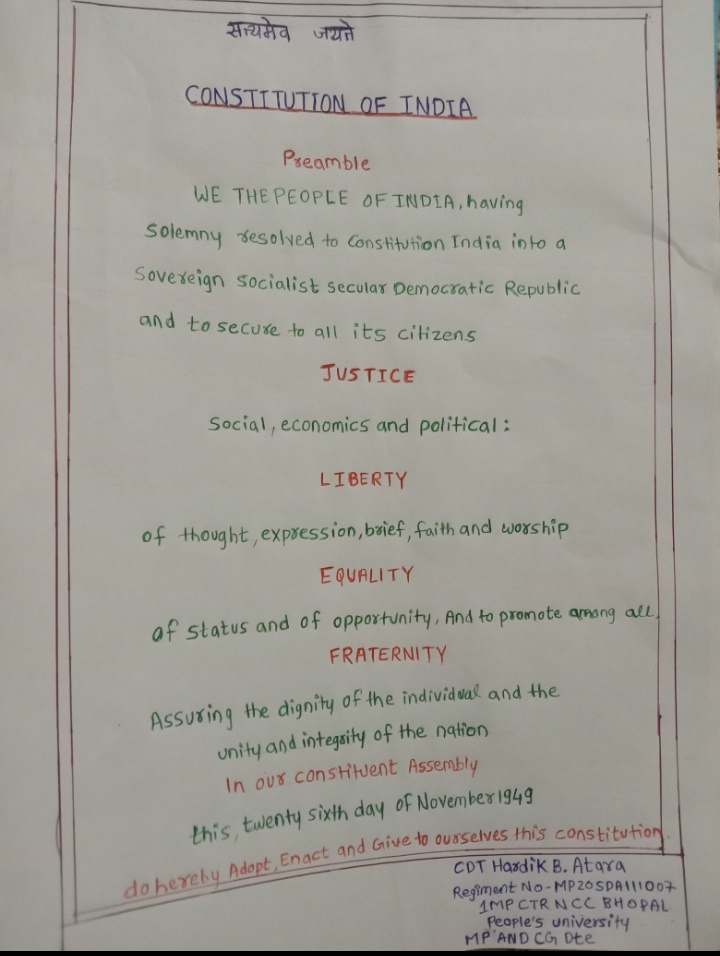 सत्यमेव जयते
CONSTITUTION OF INDIA
Preamble
WE THE PEOPLE OF INDIA, having
Solemny resolved to Constitution India into a
Sovereign Socialist secular Democratic Republic
and to secure to all its citizens
JUSTICE
Social, economics and political:
LIBERTY
of thought, expression, brief, faith and worship
EQUALITY
of status and of opportunity, And to promote among all,
FRATERNITY
Assuring the dignity of the individual and the
unity and integrity of the nation
In our constituent Assembly
this, twenty sixth day of November 1949
do hereby Adopt, Enact and Give to ourselves this constitution.
CDT Hardik B. Atara
Regiment No-MP20SDA111007
1MP CTR NCC BHOPAL
People's university
MP AND CG Dte